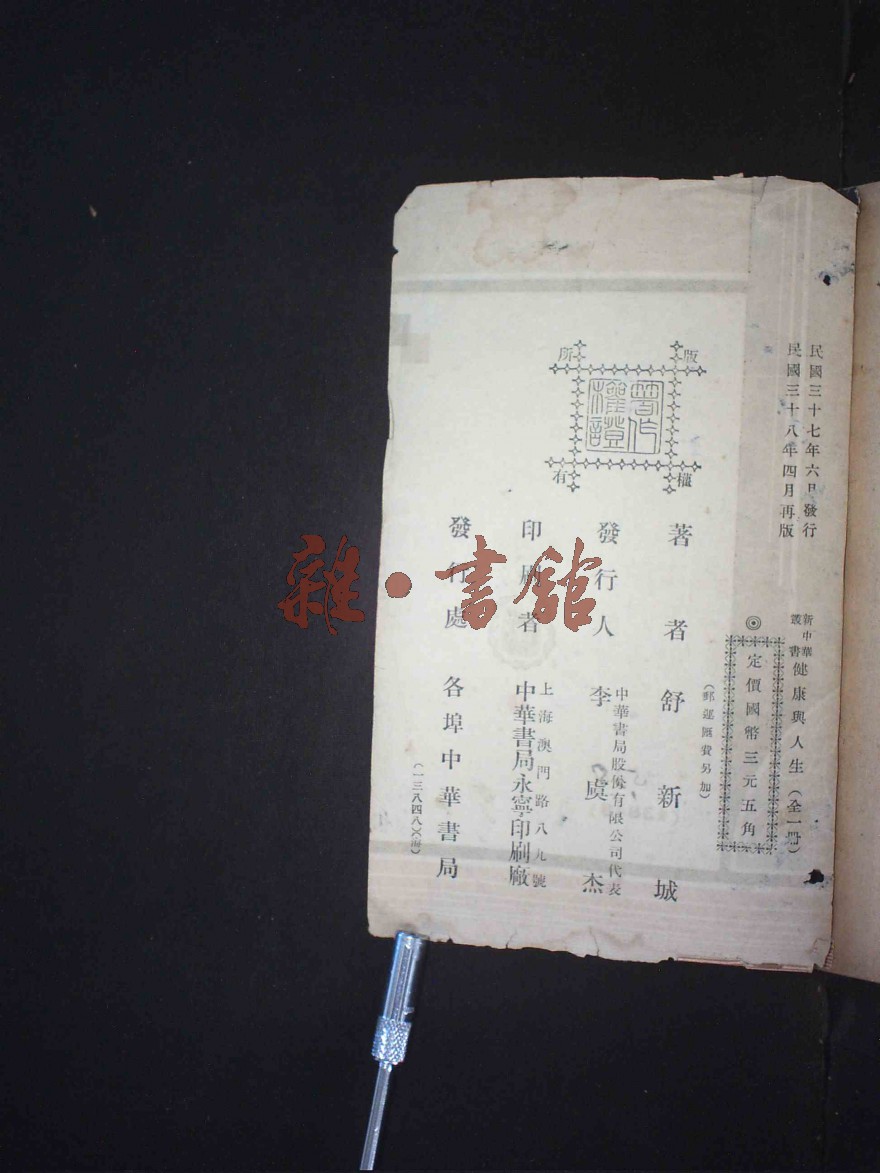 民國三十七年六月發行
民國三十八年四月再版
新中華
叢書
健康與人生(全一冊)
◎定價國幣三元五角
(郵運匯費另加)
版權所有
著作權證
著者 舒新城
發行人 中華書局股份有限公司代表
李虞杰
印刷者 上海澳門路八九號
中華書局永寧印刷廠
發行處 各埠中華書局
(一三八四八)(海)
雜·書館